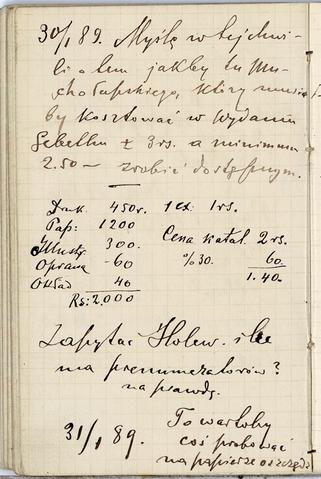 30/1 89. Myślę w tej chwi-
li o tem jakby tu Mu-
chołapskiego, który musia
by kosztować w wydaniu
Gebethn ± 3rs. a minimum
2.50 — zrobić dostępnym.
Druk 450r. 1 ex: 1rs.
Pap: 1200
Illustr. 300. Cena katal. 2rs.
Oprawa -60 %30. 60.
Okład 40 1.40.
Rs: 2.000
Zapytać Holew. ile
ma prenumeratorów?
na prawdę.
31/1 89. To wartoby
coś probować
na papierze oszczędz